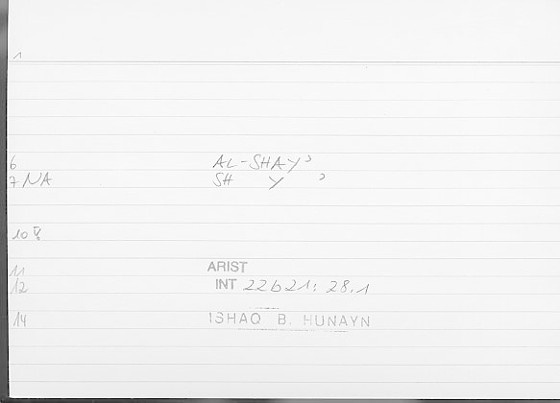 1
6 AL-SHAYʾ
7 NA SH Y ʾ
10
11 ARIST
12 INT 22b21; 28.1
14 ISHAQ B. HUNAYN